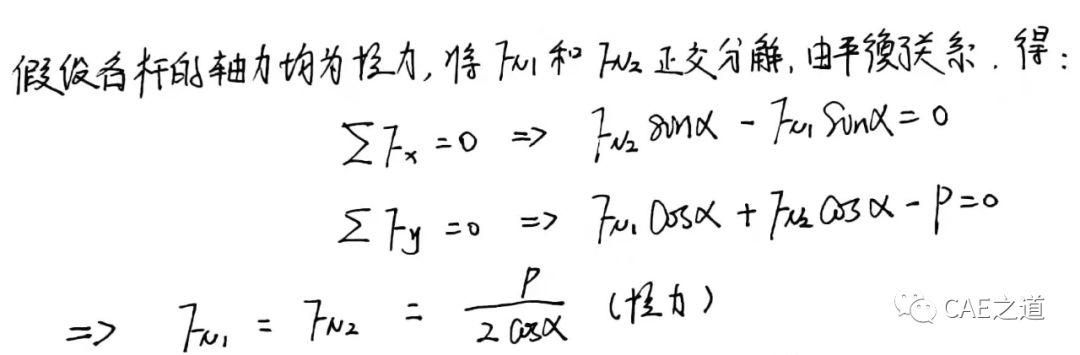 假设各杆的轴力均为拉力,将 F_N1 和 F_N2 正交分解,由平衡关系,得:
∑F_x = 0 => F_N2 sinα - F_N1 sinα = 0
∑F_y = 0 => F_N1 cosα + F_N2 cosα - P = 0
=> F_N1 = F_N2 = P / 2cosα (拉力)
CAE之道